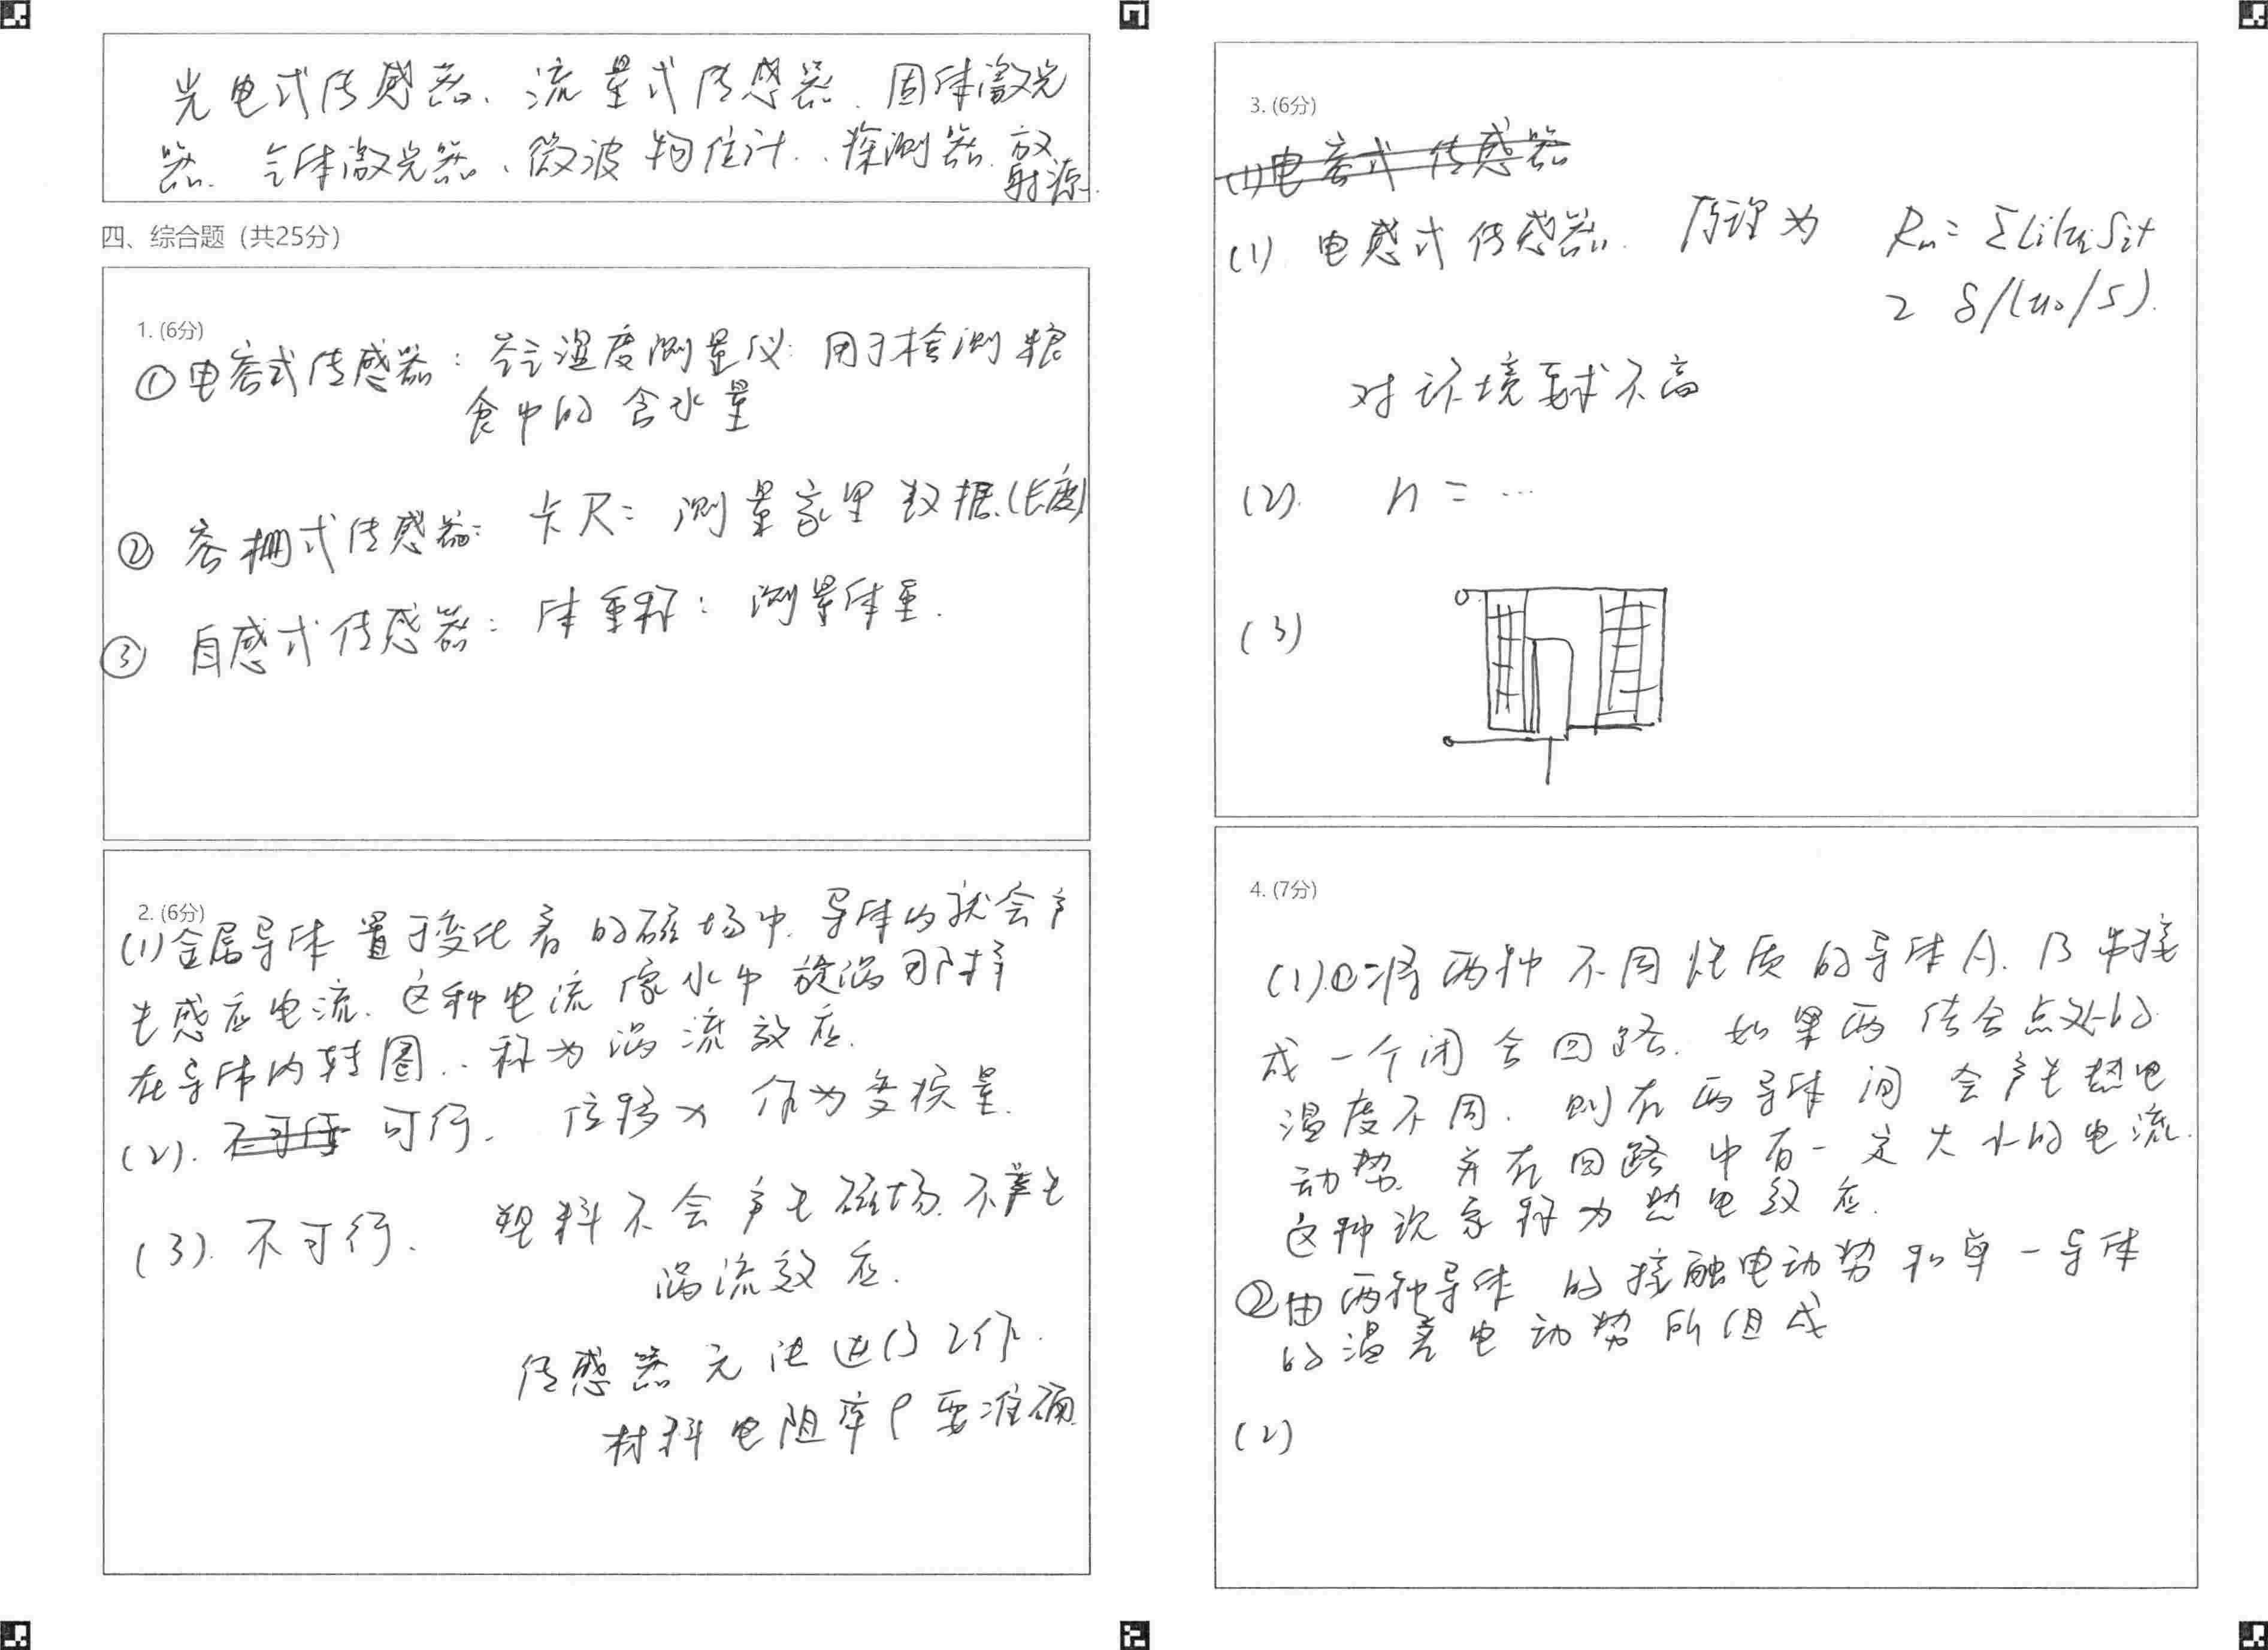 光电式传感器、流量式传感器、固体激光
器、气体激光器、微波物位计、探测器、放
射源.
四、综合题（共25分）
1. (6分)
①电容式传感器: 空气湿度测量仪: 用于检测粮
食中的含水量
② 容栅式传感器: 卡尺: 测量家里数据(长度)
③ 自感式传感器: 体重称: 测量体重.
2. (6分)
(1)金属导体置于变化着的磁场中. 导体内就会产
生感应电流. 这种电流像水中旋涡那样
在导体内转圈.. 称为涡流效应.
(2). 不可行 可行. 位移x作为变换量.
(3). 不可行. 塑料不会产生磁场. 不产生
涡流效应.
传感器无法进行工作.
材料电阻率ρ要准确.
3. (6分)
(1)电容式传感器
(1) 电感式传感器. 原理为 Rm= ΣLi/μiSi+
2 δ/(μ0/S).
对环境要求不高
(2). n = ...
(3)
4. (7分)
(1).①将两种不同性质的导体A. B串接
成一个闭合回路. 如果两结合点处的
温度不同. 则在两导体间会产生热电
动势. 并在回路中有一定大小的电流.
这种现象称为热电效应.
②由两种导体的接触电动势和单一导体
的温差电动势所组成
(2)